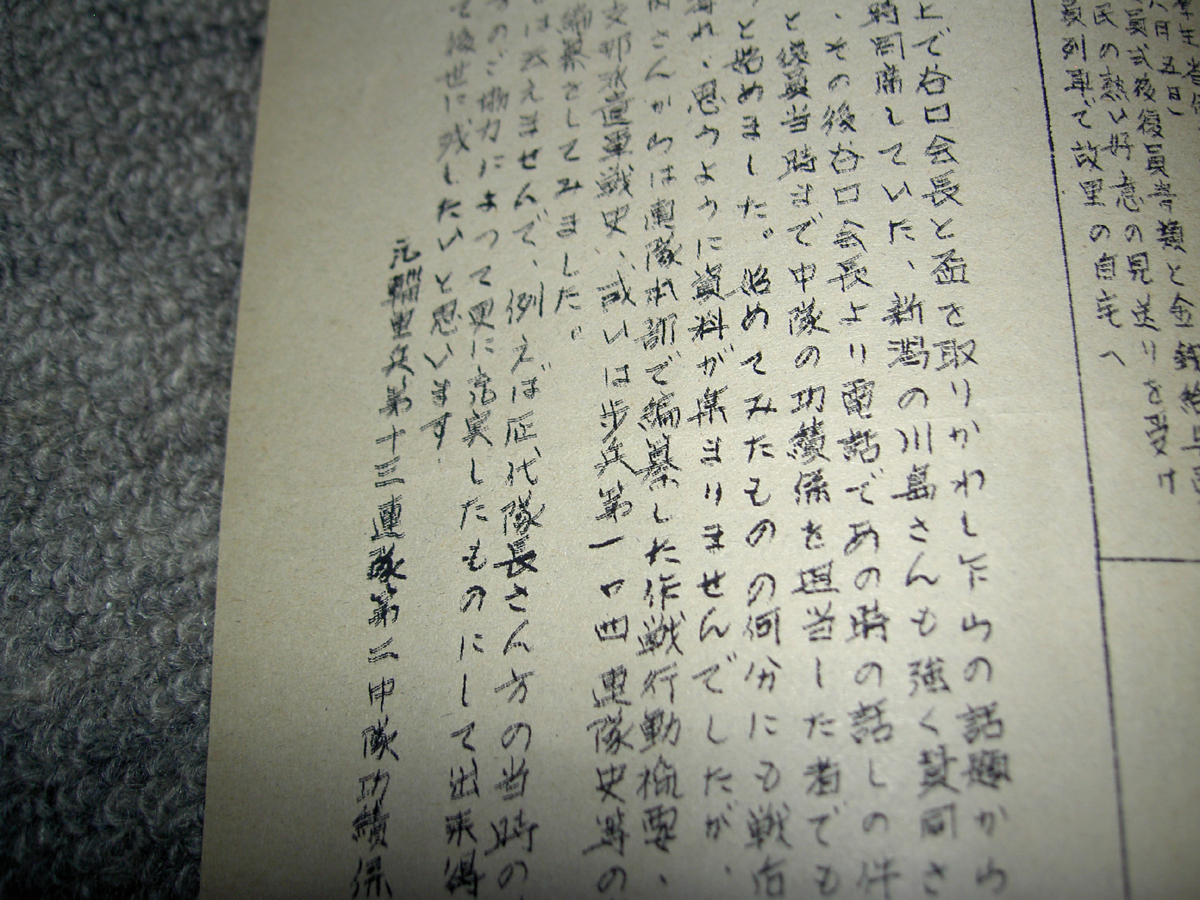 八日五日
員式後復員者類と金銭給与
民の熱い好意の見送りを受け
員列車で故里の自宅へ
上で谷口会長と盃を取りかわし下山の話題から
時同席していた、新潟の川島さんも強く賛同さ
、その後谷口会長より電話であの時の話しの件
と復員当時まで中隊の功績係を担当した者でも
と始めました。始めてみたものの何分にも戦后
れ、思うように資料が集まりませんでしたが、
さんから は連隊本部で編纂した作戦行動概要、
支那派遣軍戦史、或いは歩兵第一〇四連隊史等の
編纂をしてみました。
は云えませんで、例えば歴代隊長さん方の当時の
のご協力によって更に充実したものにして出来得
て後世に残したいと思います
元輜重兵第十三連隊第二中隊功績係